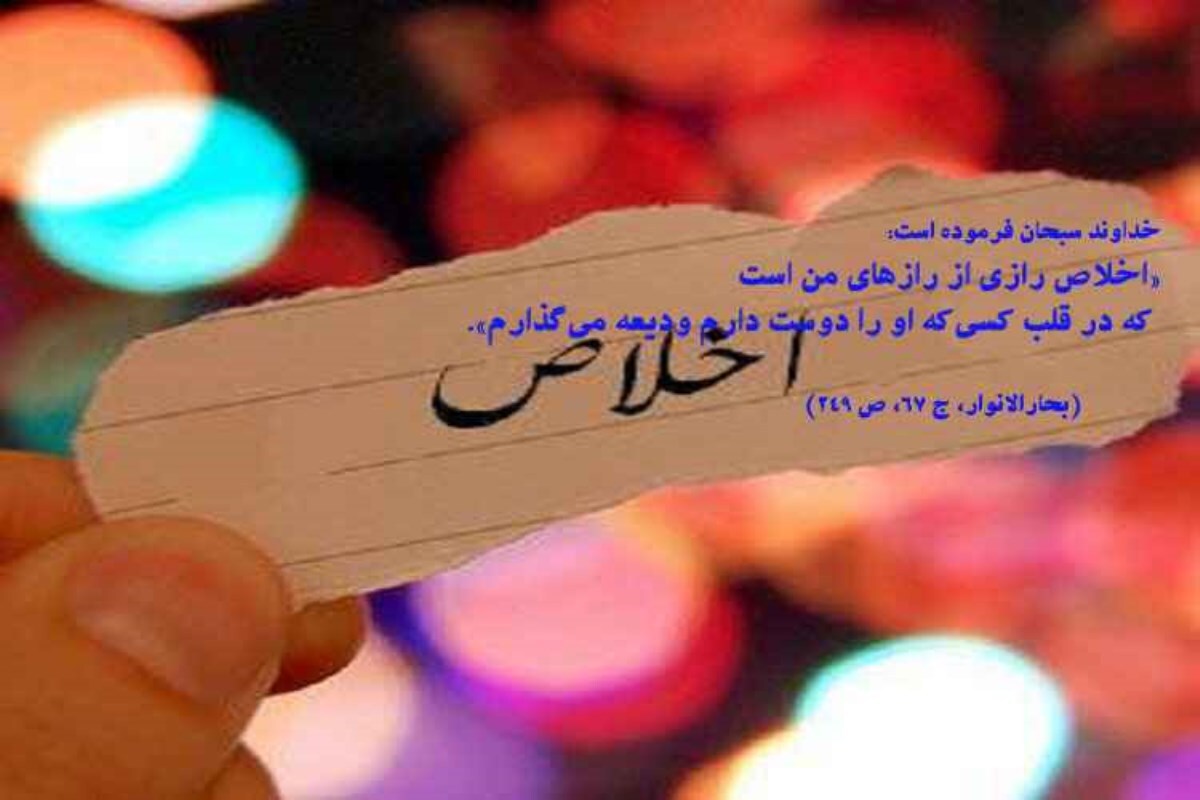 خداوند سبحان فرموده است:
«اخلاص رازی از رازهای من است
که در قلب کسی‌که او را دوست دارم ودیعه می‌گذارم».
اخلاص
(بحارالانوار، ج ٦٧، ص ٢٤٩)